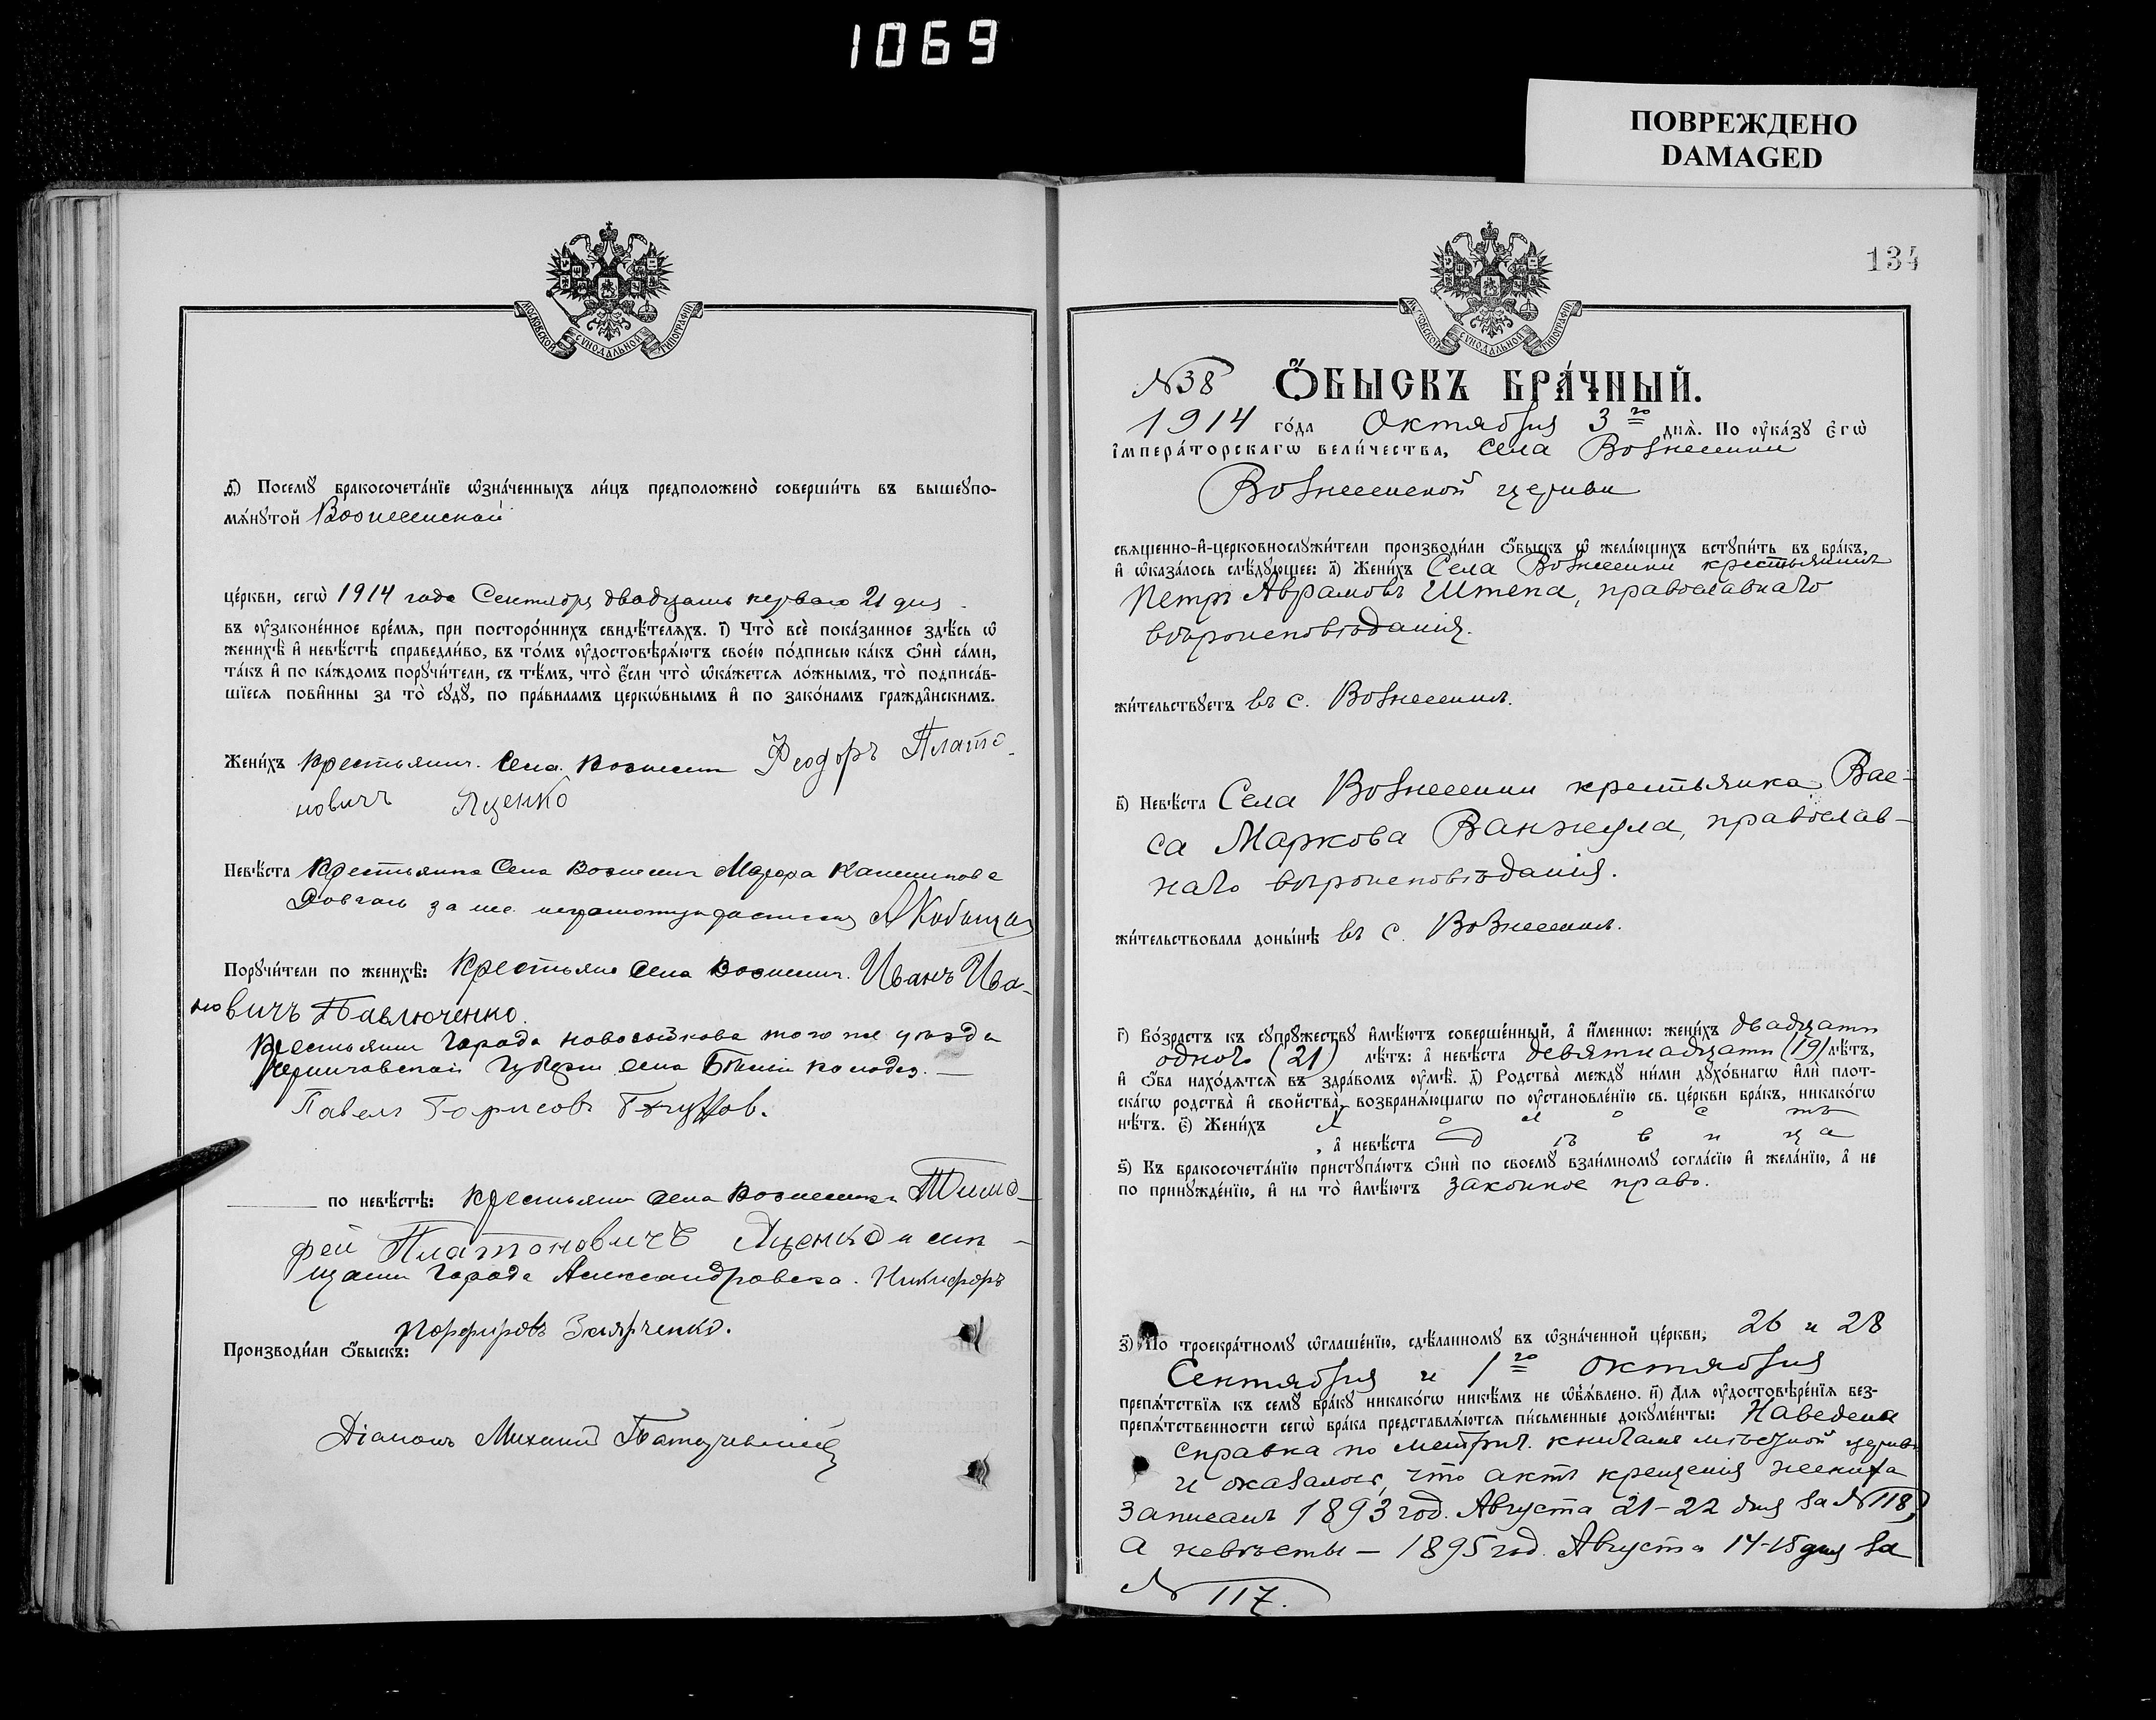 1069
ПОВРЕЖДЕНО
DAMAGED
МОСКОВСКОЙ СУНОДАЛЬНОЙ ТИПОГРАФІИ
ѳ҃) Посемꙋ̀ бракосочета́нїе ѡ҆зна́ченныхъ ли́цъ предположено̀ соверши́ть въ вышеꙋпо-
мѧ́нꙋтой Вознесенской
це́ркви, сегѡ̀ 1914 года Сентября двадцать перваго 21 дня
въ ᲂу҆законе́нное вре́мѧ, при посторо́ннихъ свидѣ́телѧхъ. і҃) Что̀ всѐ пока́занное здѣ́сь ѡ҆
женихѣ̀ и҆ невѣ́стѣ справедли́во, въ то́мъ ᲂу҆достовѣрѧ́ютъ свое́ю по́дписью ка́къ ѻ҆нѝ са́ми,
та́къ и҆ по ка́ждомъ порꙋчи́тели, съ тѣ́мъ, что̀ є҆́сли что̀ ѡ҆ка́жетсѧ ло́жнымъ, то̀ подписа́в-
шїесѧ пови́нны за то̀ сꙋдꙋ̀, по пра́виламъ церкѡ́внымъ и҆ по зако́намъ гражда̑нскимъ.
Жени́хъ крестьянин. села Вознесен Феодоръ Плато-
новичъ Яценко
Невѣ́ста крестьянка села Вознесен
за нее неграмотную
Порꙋчи́тели по женихѣ̀: крестьяне села Вознесен. Иванъ Ива-
новичъ Павлюченко.
крестьянин города Новозыбкова того же уѣзда
Черниговской губерн села
Павелъ Борисовъ
по невѣ́стѣ: крестьянин села Вознесенки Тимо-
фей Платоновичъ Яценко и мѣ-
щанин города Александровска. Никифоръ
Порфировъ
Производи́ли ѻ҆́быскъ:
Діаконъ Михаилъ
134
МОСКОВСКОЙ СУНОДАЛЬНОЙ ТИПОГРАФІИ
№38 Ѻ҆́БЫСКЪ БРА́ЧНЫЙ.
1914 го́да Октября 3го днѧ̀. По ᲂу҆ка́зꙋ Є҆гѡ̀
І҆мпера́торскагѡ вели́чества, села Вознесенки
Вознесенской церкви
свѧще́нно-и҆-церковнослꙋжи́тели производи́ли ѻ҆́быскъ ѡ҆ жела́ющихъ встꙋпи́ть въ бра́къ,
и҆ ѡ҆каза́лось слѣ́дꙋющее: а҃) Жени́хъ Села Вознесенки крестьянинъ
Петръ Аврамовъ Штепа, православнаго
вѣроисповѣданія.
жи́тельствꙋетъ въ с. Вознесенкѣ.
в҃) Невѣ́ста Села Вознесенки крестьянка Вас-
са Маркова Ванжула, православ-
наго вѣроисповѣданія.
жи́тельствовала доны́нѣ въ с. Вознесенкѣ.
г҃) Во́зрастъ къ сꙋпрꙋ́жествꙋ и҆мѣ́ютъ соверше́нный, а҆ и҆́менно: жени́хъ двадцати
одного (21) лѣ́тъ: а҆ невѣ́ста девятнадцати (19) лѣ́тъ,
и҆ ѻ҆́ба нахо́дѧтсѧ въ здра́вомъ ᲂу҆мѣ̀. д҃) Родства̀ междꙋ̀ ни́ми дꙋхо́внагѡ и҆лѝ плот-
ска́гѡ родства̀ и҆ сво́йства, возбранѧ́ющагѡ по ᲂу҆становле́нїю св. це́ркви бра́къ, никако́гѡ
нѣ́тъ. є҃) Жени́хъ холостъ
, а҆ невѣ́ста дѣвица
ѕ҃) Къ бракосочета́нїю пристꙋпа́ютъ ѻ҆нѝ по своемꙋ̀ взаи́мномꙋ согла́сїю и҆ жела́нїю, а҆ не
по принꙋжде́нїю, и҆ на то̀ и҆мѣ́ютъ законное право.
з҃) По троекра́тномꙋ ѡ҆глаше́нїю, сдѣ́ланномꙋ въ ѡ҆зна́ченной це́ркви, 26 и 28
Сентября и 1го октября
препѧ́тствїѧ къ семꙋ̀ бра́кꙋ никако́гѡ никѣ́мъ не ѡ҆б̾ѧ́влено. и҃) Длѧ ᲂу҆достовѣре́нїѧ без-
препѧ́тственности сегѡ̀ бра́ка представлѧ́ютсѧ пи́сьменные докꙋме́нты: Наведена
справка по метрич. книгамъ мѣстной церкви
и оказалось, что актъ крещенія жениха
записанъ 1893 год. Августа 21–22 дня за № 118,
а невѣсты – 1895 год. Августа 14-15 дня за
№ 117.